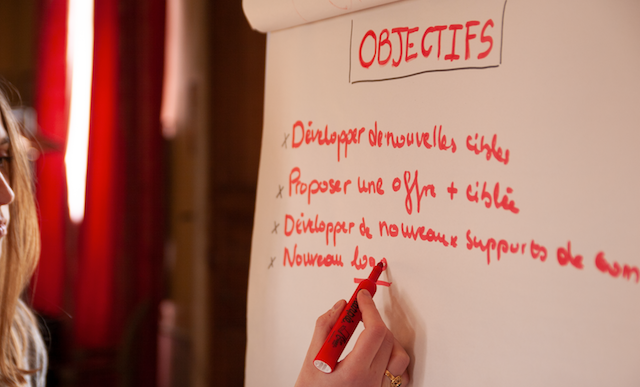 OBJECTIFS
x Développer de nouvelles cibles
x Proposer une offre + ciblée
x Développer de nouveaux supports de com
x Nouveau